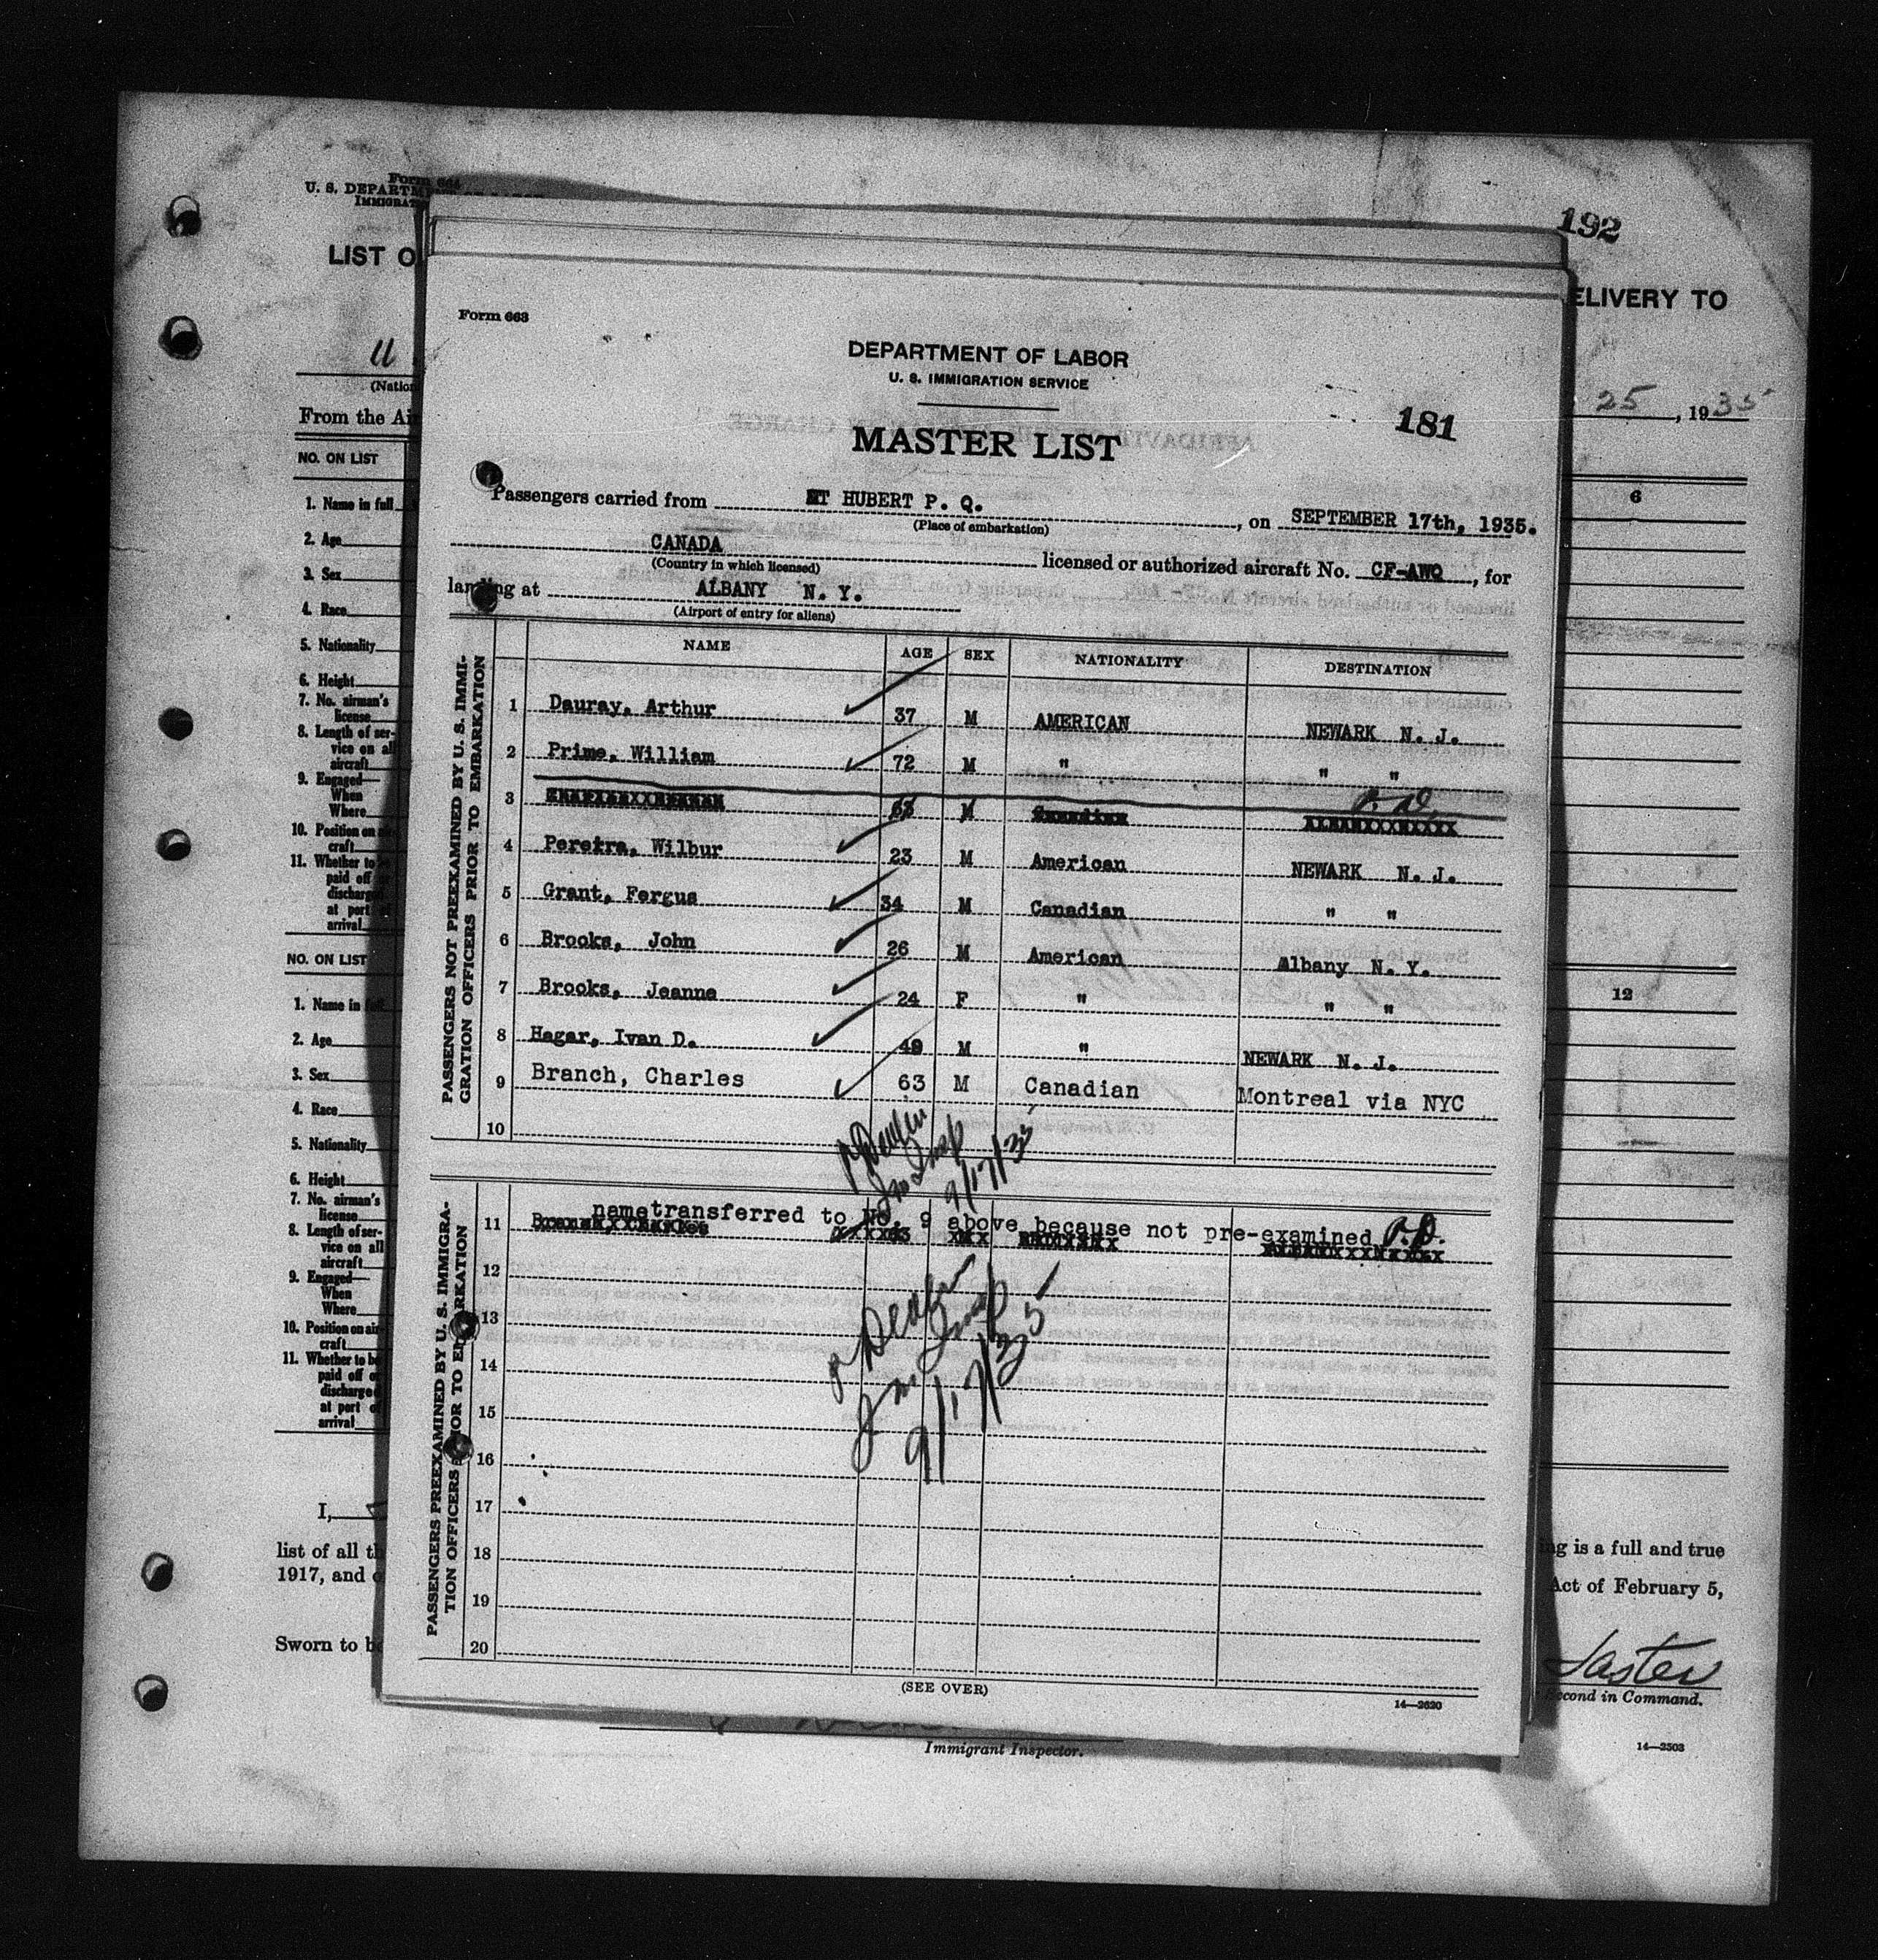 Form 664
U. S. DEPARTM
IMMIGRAT
192
LIST O
ELIVERY TO
(Nation
25, 1935
From the Air
NO. ON LIST
6
1. Name in full
2. Age
3. Sex
4. Race
5. Nationality
6. Height
7. No. airman's
license
8. Length of ser-
vice on all
aircraft
9. Engaged—
When
Where
10. Position on air-
craft
11. Whether to be
paid off or
discharged
at port of
arrival
NO. ON LIST
12
1. Name in full
2. Age
3. Sex
4. Race
5. Nationality
6. Height
7. No. airman's
license
8. Length of ser-
vice on all
aircraft
9. Engaged—
When
Where
10. Position on air-
craft
11. Whether to be
paid off or
discharged
at port of
arrival
I,
list of all th
ing is a full and true
1917, and
Act of February 5,
Sworn to be
Second in Command.
Immigrant Inspector.
14—2503
Form 663
DEPARTMENT OF LABOR
U. S. IMMIGRATION SERVICE
181
MASTER LIST
Passengers carried from ST HUBERT P. Q., on SEPTEMBER 17th, 1935.
(Place of embarkation)
CANADA licensed or authorized aircraft No. CF-AWQ, for
(Country in which licensed)
landing at ALBANY N. Y.
(Airport of entry for aliens)
NAME AGE SEX NATIONALITY DESTINATION
PASSENGERS NOT PREEXAMINED BY U. S. IMMI-
GRATION OFFICERS PRIOR TO EMBARKATION
1 Dauray, Arthur 37 M AMERICAN NEWARK N. J.
2 Prime, William 72 M " " "
3 63 M P.D.
4 Pereira, Wilbur 23 M American NEWARK N. J.
5 Grant, Fergus 34 M Canadian " "
6 Brooks, John 26 M American Albany N. Y.
7 Brooks, Jeanne 24 F " " "
8 Hagar, Ivan D. 49 M " NEWARK N. J.
9 Branch, Charles 63 M Canadian Montreal via NYC
10
9/17/35
PASSENGERS PREEXAMINED BY U. S. IMMIGRA-
TION OFFICERS PRIOR TO EMBARKATION
nametransferred to No. 9 above because not pre-examined P.D.
11
12
13
14
15
16
17
18
19
20
9/17/35
(SEE OVER)
14—2620